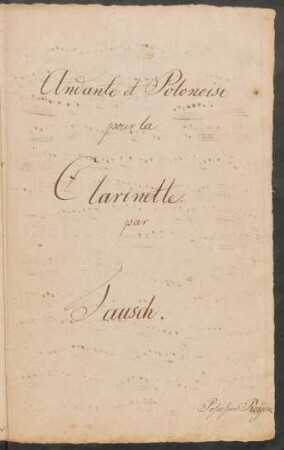 Andante et Polonoise
pour la
Clarinette
par
Tausch.